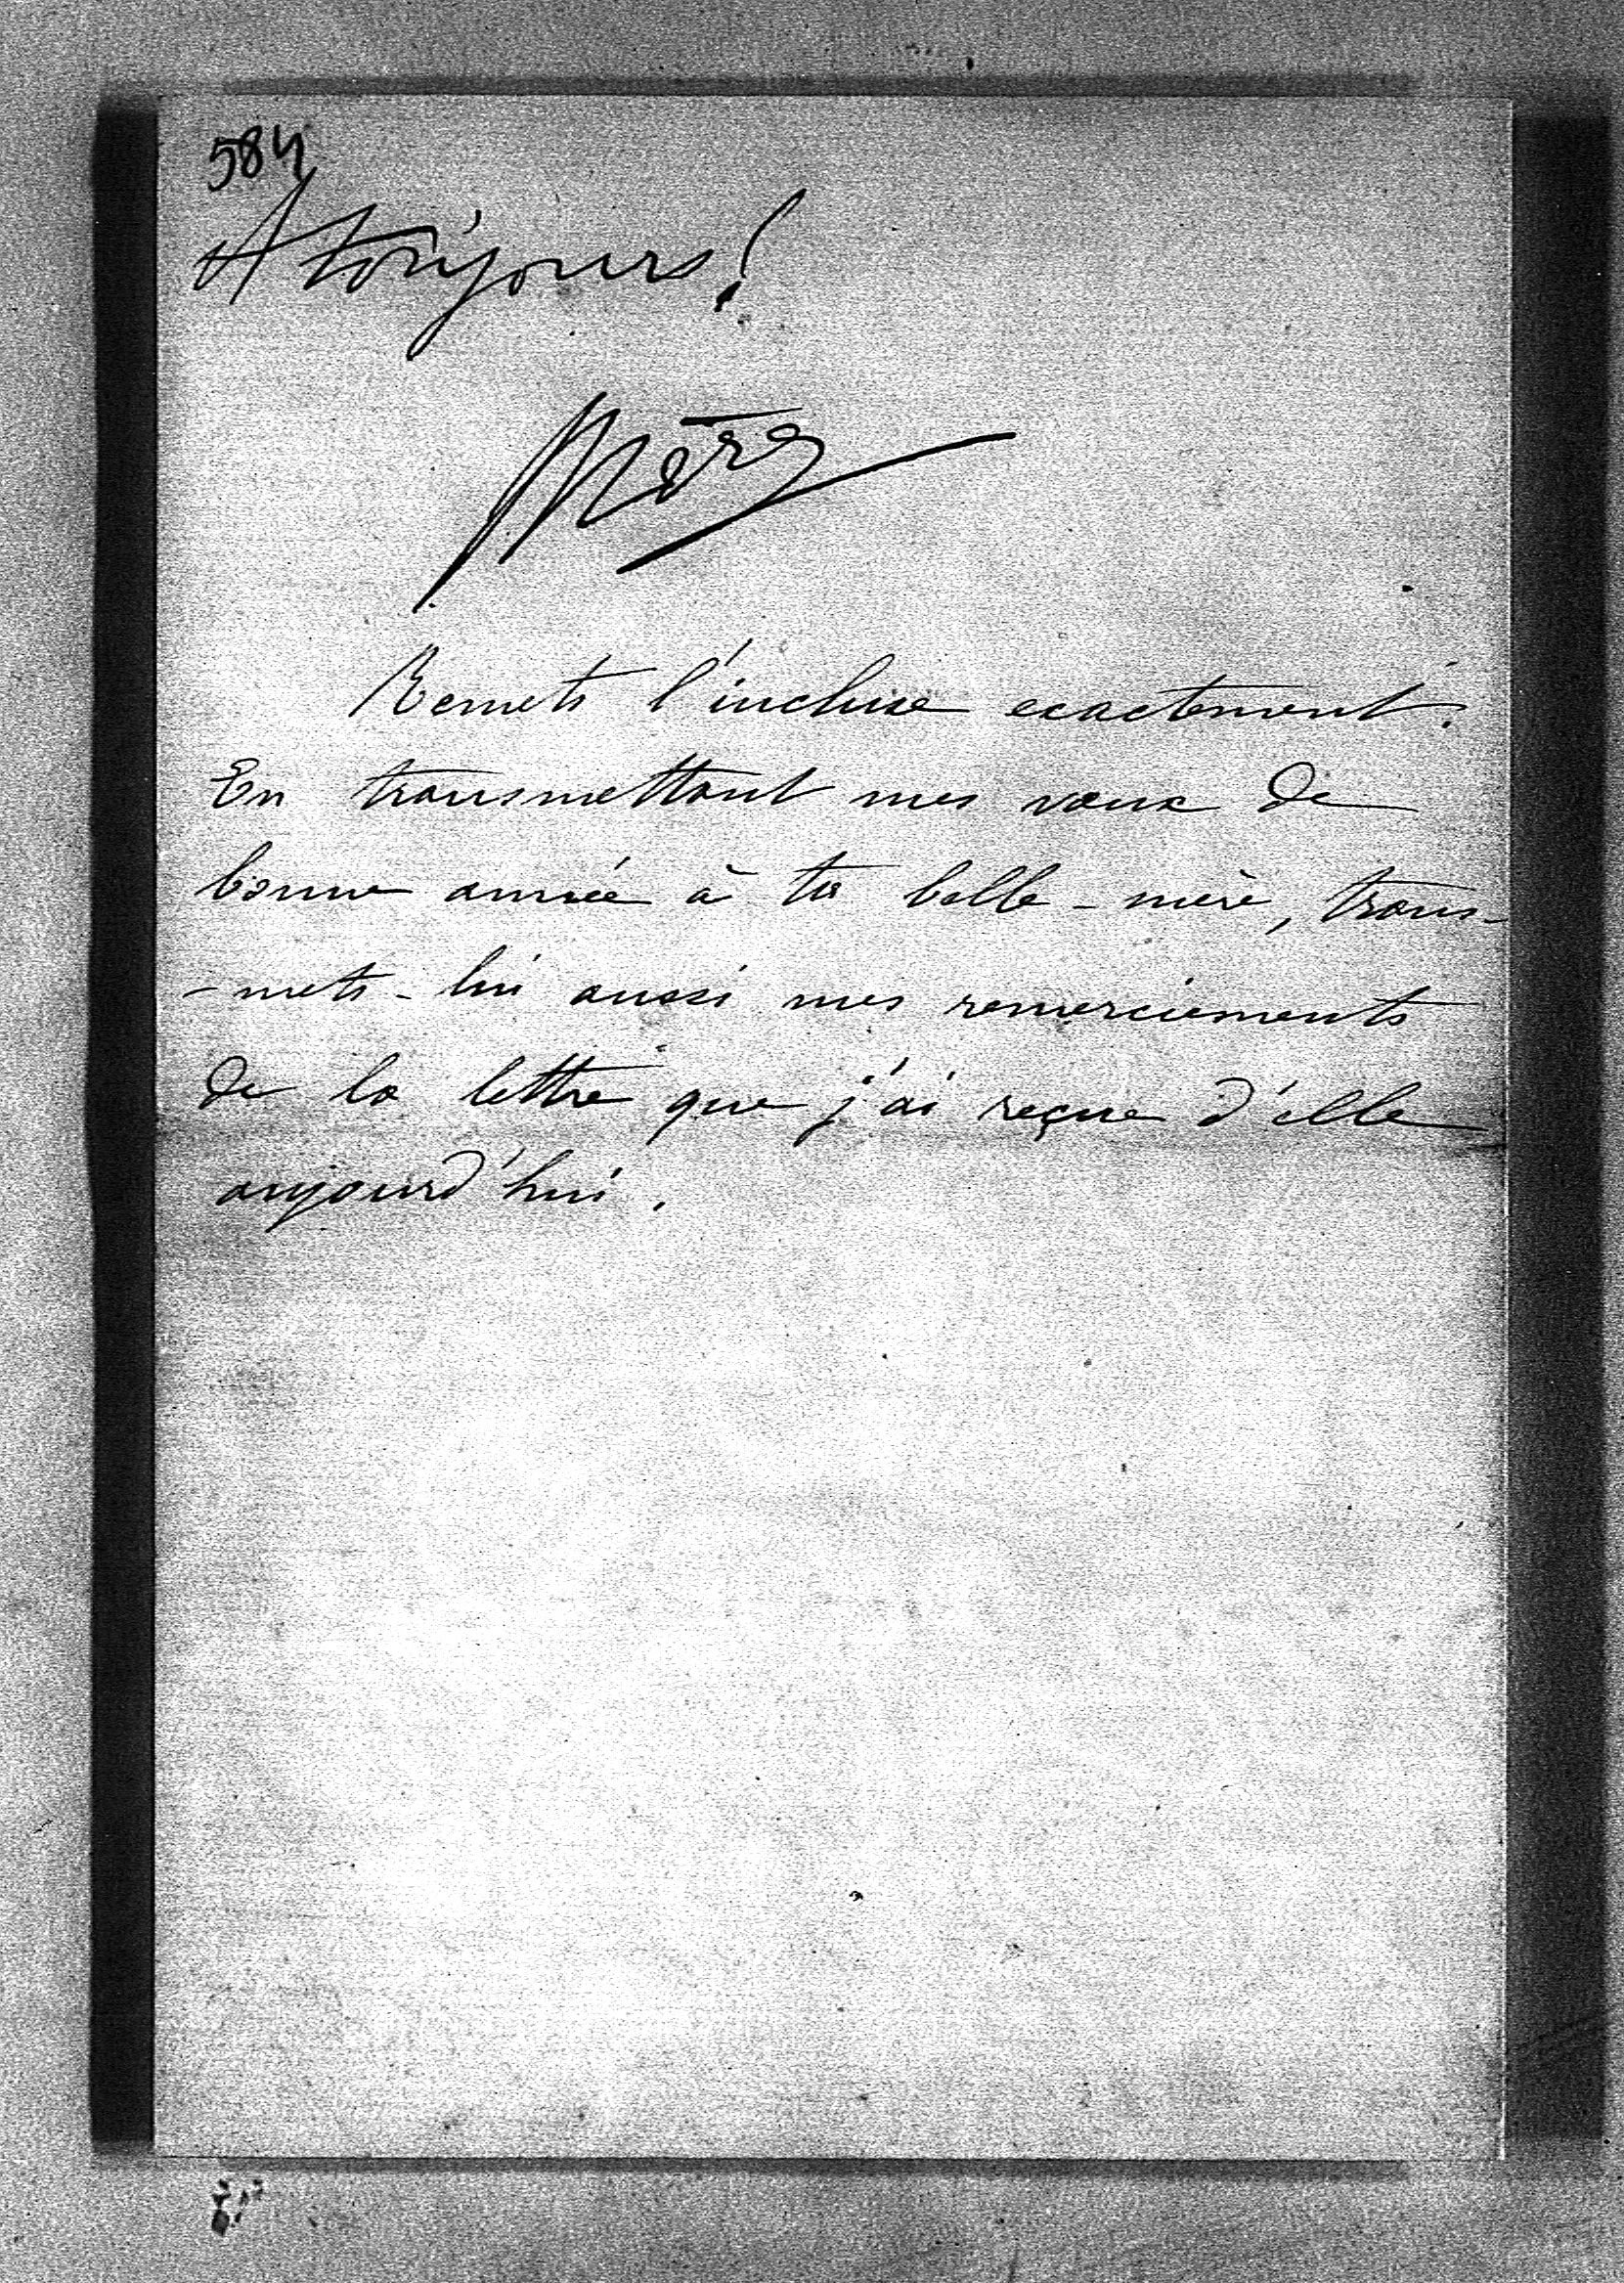 584
A toujours!
Remets l'incluse exactement.
En transmettant mes vœux de
bonne année à ta belle-mère, trans-
-mets-lui aussi mes remerciements
de la lettre que j'ai reçue d'elle
aujourd'hui.